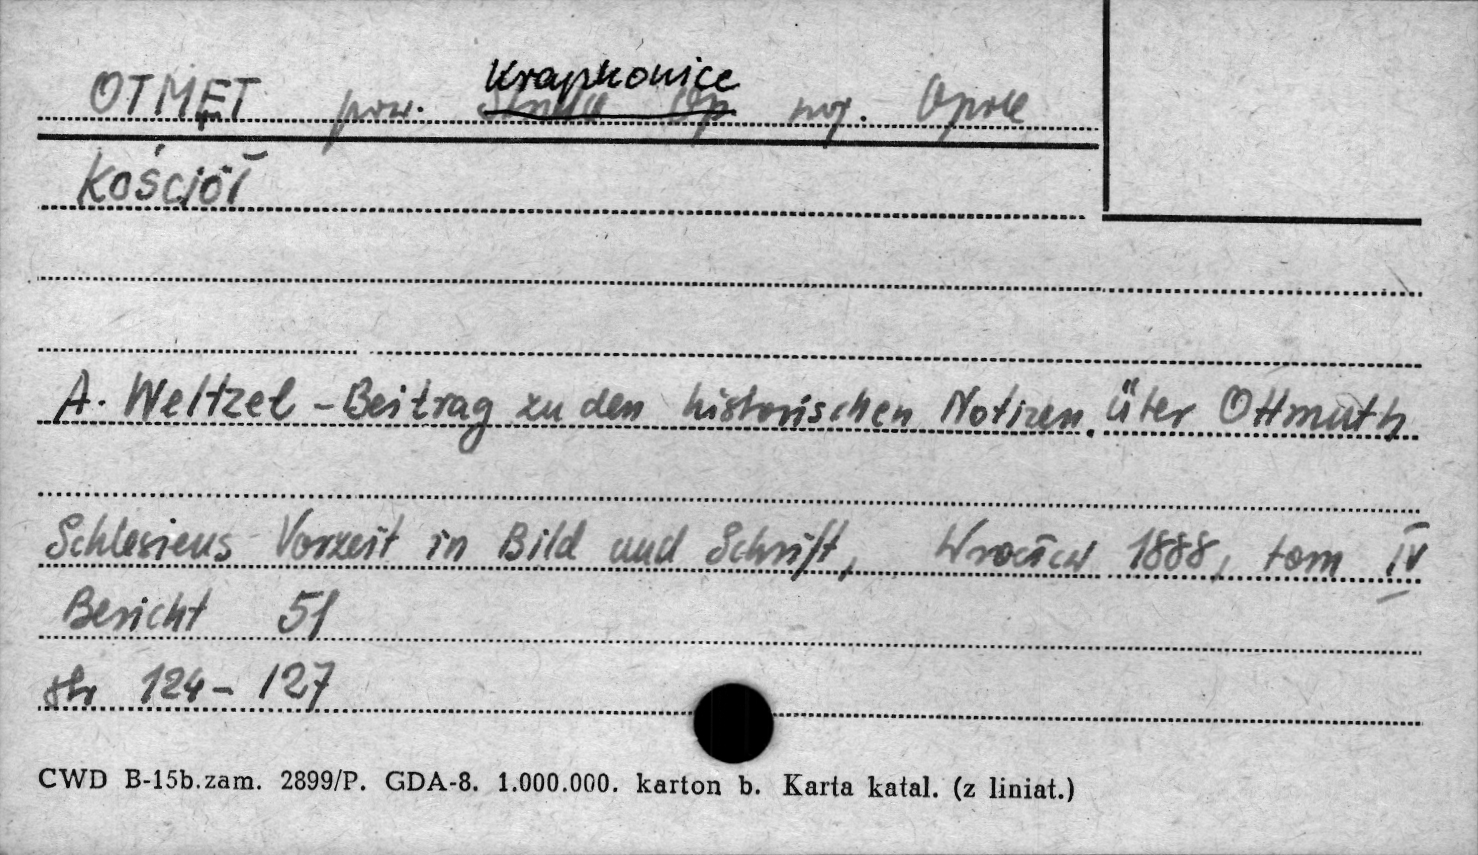 Krapkowice
OTMĘT pow. Strzelce Op woj. Opole
Kościół
A. Weltzel - Beitrag zu den historischen Notizen über Ottmuth
Schlesiens Vorzeit in Bild und Schrift, Wrocław 1888, tom IV
Bericht 51
str 124 - 127
CWD B-15b.zam. 2899/P. GDA-8. 1.000.000. karton b. Karta katal. (z liniat.)